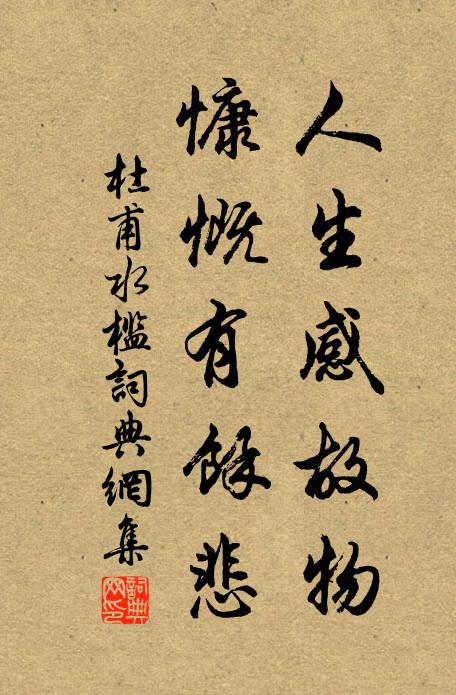 人生感故物
慷慨有餘悲
杜甫水檻詞典網集
詞典網印